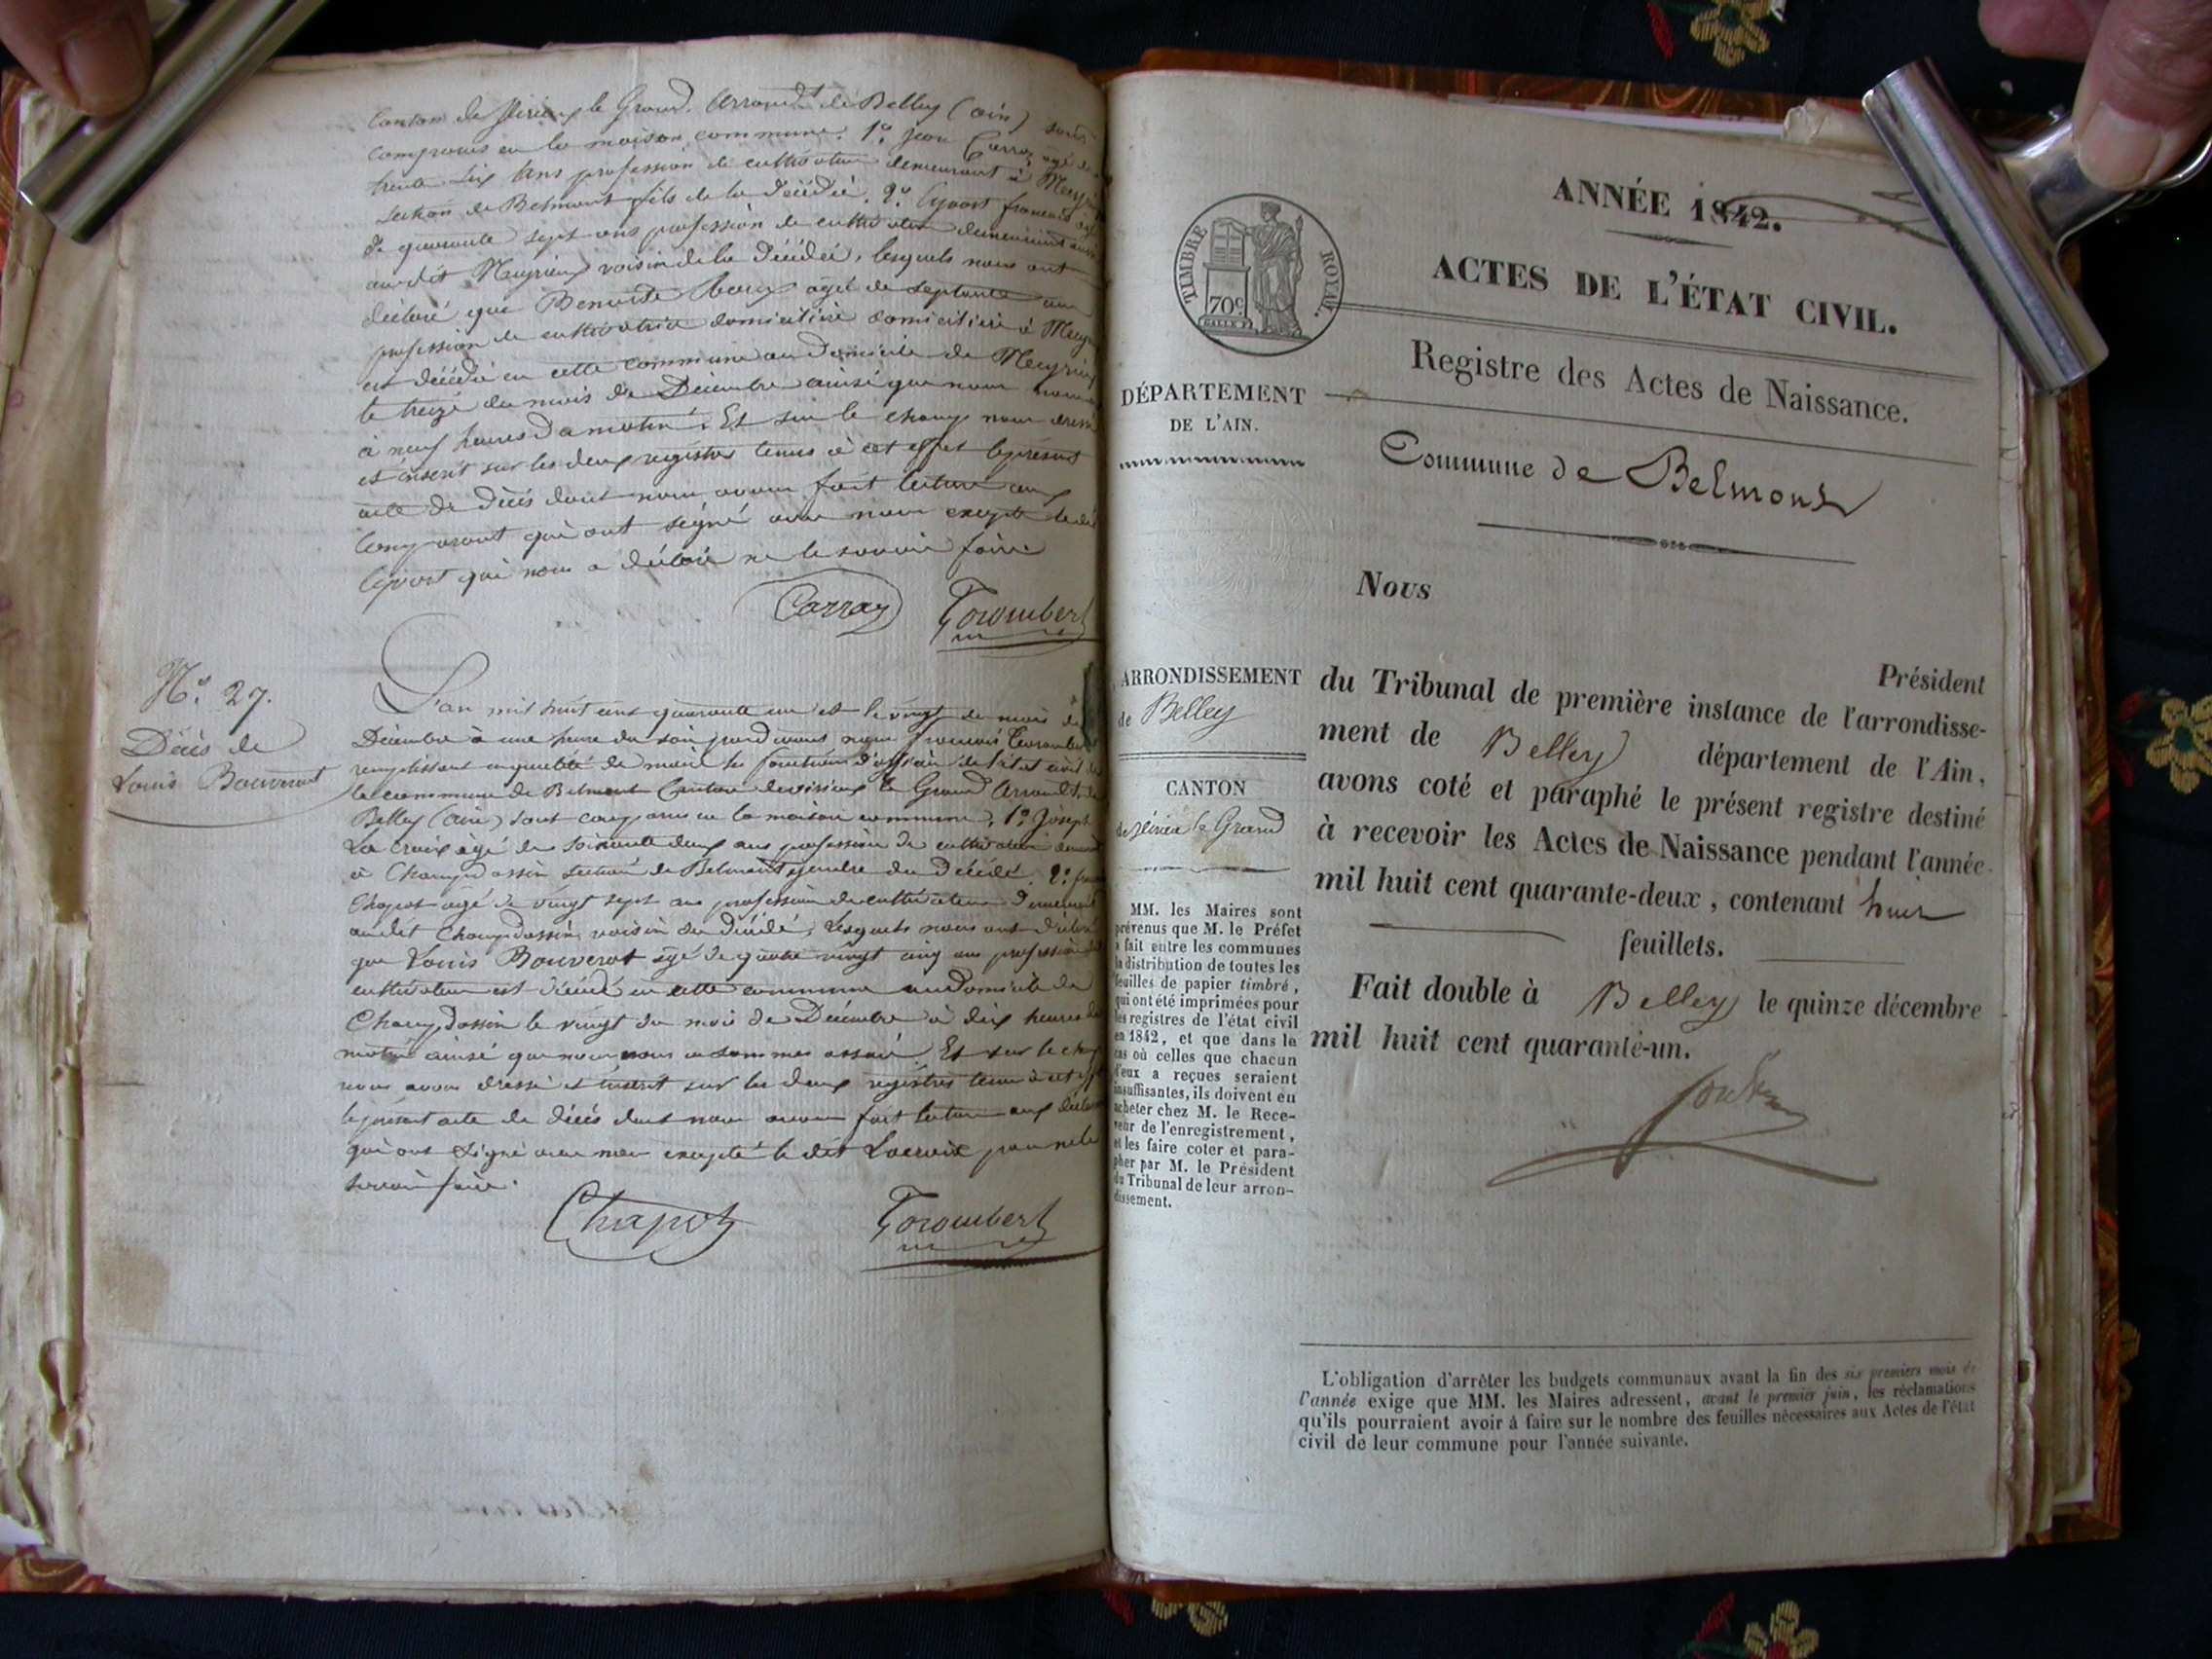 Canton de Virieu le Grand. Arrond.t de Belley (ain) sont
comparus en la maison commune. 1.° Jean Carray agé de
trente six ans profession de cultivateur demeurant à
section de Belmont fils de la décédée. 2.° françois
de quarante sept ans profession de cultivateur demeurant
audit Meyrieux voisin de la décédée, lesquels nous ont
déclaré que Benoite agée de septante
profession de cultivatrice domiciliée domiciliée à
est décédée en cette commune au domicile de Meyrieux
le treize du mois de Décembre ainsi que nous
à neuf heures du matin. Et sur le champ nous
et inscrit sur les deux registres tenus à cet effet le présent
acte de décès dont nous avons fait lecture aux
comparant qui ont signé avec nous excepté
qui nous a déclaré ne le savoir faire
Carray Torombert
N.° 27.
Décès de
Louis Bouverot
L'an mil huit cent quarante un et le vingt du mois de
Décembre à une heure du soir pardevant nous françois Torombert
remplissant en qualité de maire les fonctions d'officier de l'état civil de
la commune de Belmont Canton de virieux le Grand Arrond.t de
Belley (ain) sont comparus en la maison commune, 1.° Joseph
La croix âgé de soixante deux ans profession de cultivateur
à Champdossin section de Belmont gendre du décédé. 2.°
Chapot agé de vingt sept ans profession de cultivateur demeurant
audit Champdossin voisin du décédé, lesquels nous ont déclaré
que Louis Bouverot agé de quatre vingt cinq ans profession de
cultivateur est décédé en cette commune au domicile de
Champdossin le vingt du mois de Décembre à dix heures du
matin ainsi que nous nous en sommes assuré. Et sur le champ
nous avons dressé et inscrit sur les deux registres tenus à cet effet
le présent acte de décès dont nous avons fait lecture aux
qui ont signé avec nous excepté le dit Lacroix pour ne le
savoir faire.
Chapot Torombert
ANNÉE 1842.
ACTES DE L'ÉTAT CIVIL.
Registre des Actes de Naissance.
Commune de Belmont
TIMBRE ROYAL.
70c
DÉPARTEMENT
DE L'AIN.
ARRONDISSEMENT
de Belley
CANTON
de Virieu le Grand
MM. les Maires sont
prévenus que M. le Préfet
a fait entre les communes
la distribution de toutes les
feuilles de papier timbré,
qui ont été imprimées pour
les registres de l'état civil
en 1842, et que dans le
cas où celles que chacun
d'eux a reçues seraient
insuffisantes, ils doivent en
acheter chez M. le Rece-
veur de l'enregistrement,
et les faire coter et para-
pher par M. le Président
du Tribunal de leur arron-
dissement.
Nous
Président
du Tribunal de première instance de l'arrondisse-
ment de Belley département de l'Ain,
avons coté et paraphé le présent registre destiné
à recevoir les Actes de Naissance pendant l'année
mil huit cent quarante-deux, contenant huit
feuillets.
Fait double à Belley le quinze décembre
mil huit cent quarante-un.
L'obligation d'arrêter les budgets communaux avant la fin des six premiers mois de
l'année exige que MM. les Maires adressent, avant le premier juin, les réclamations
qu'ils pourraient avoir à faire sur le nombre des feuilles nécessaires aux Actes de l'état
civil de leur commune pour l'année suivante.